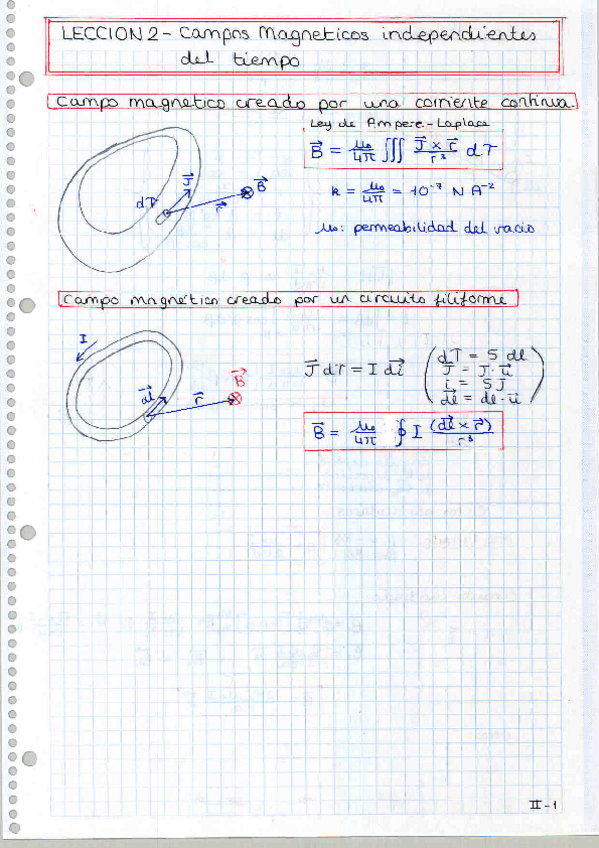 LECCION 2 - Campos Magneticos independientes
del tiempo
Campo magnetico creado por una corriente continua.
Ley de Ampere-Laplace
B⃗ = μ₀/4π ∭ J⃗ x r⃗ / r³ dτ
k = μ₀/4π = 10⁻⁷ N A⁻²
μ₀: permeabilidad del vacio
dτ J⃗ r⃗ B⃗
Campo magnético creado por un circuito filiforme
I dl⃗ r⃗ B⃗
J⃗ dτ = I dl⃗
dτ = S dl
J⃗ = J · u⃗
i = S J
dl⃗ = dl · u⃗
B⃗ = μ₀/4π ∮ I (dl⃗ x r⃗) / r³
II-1